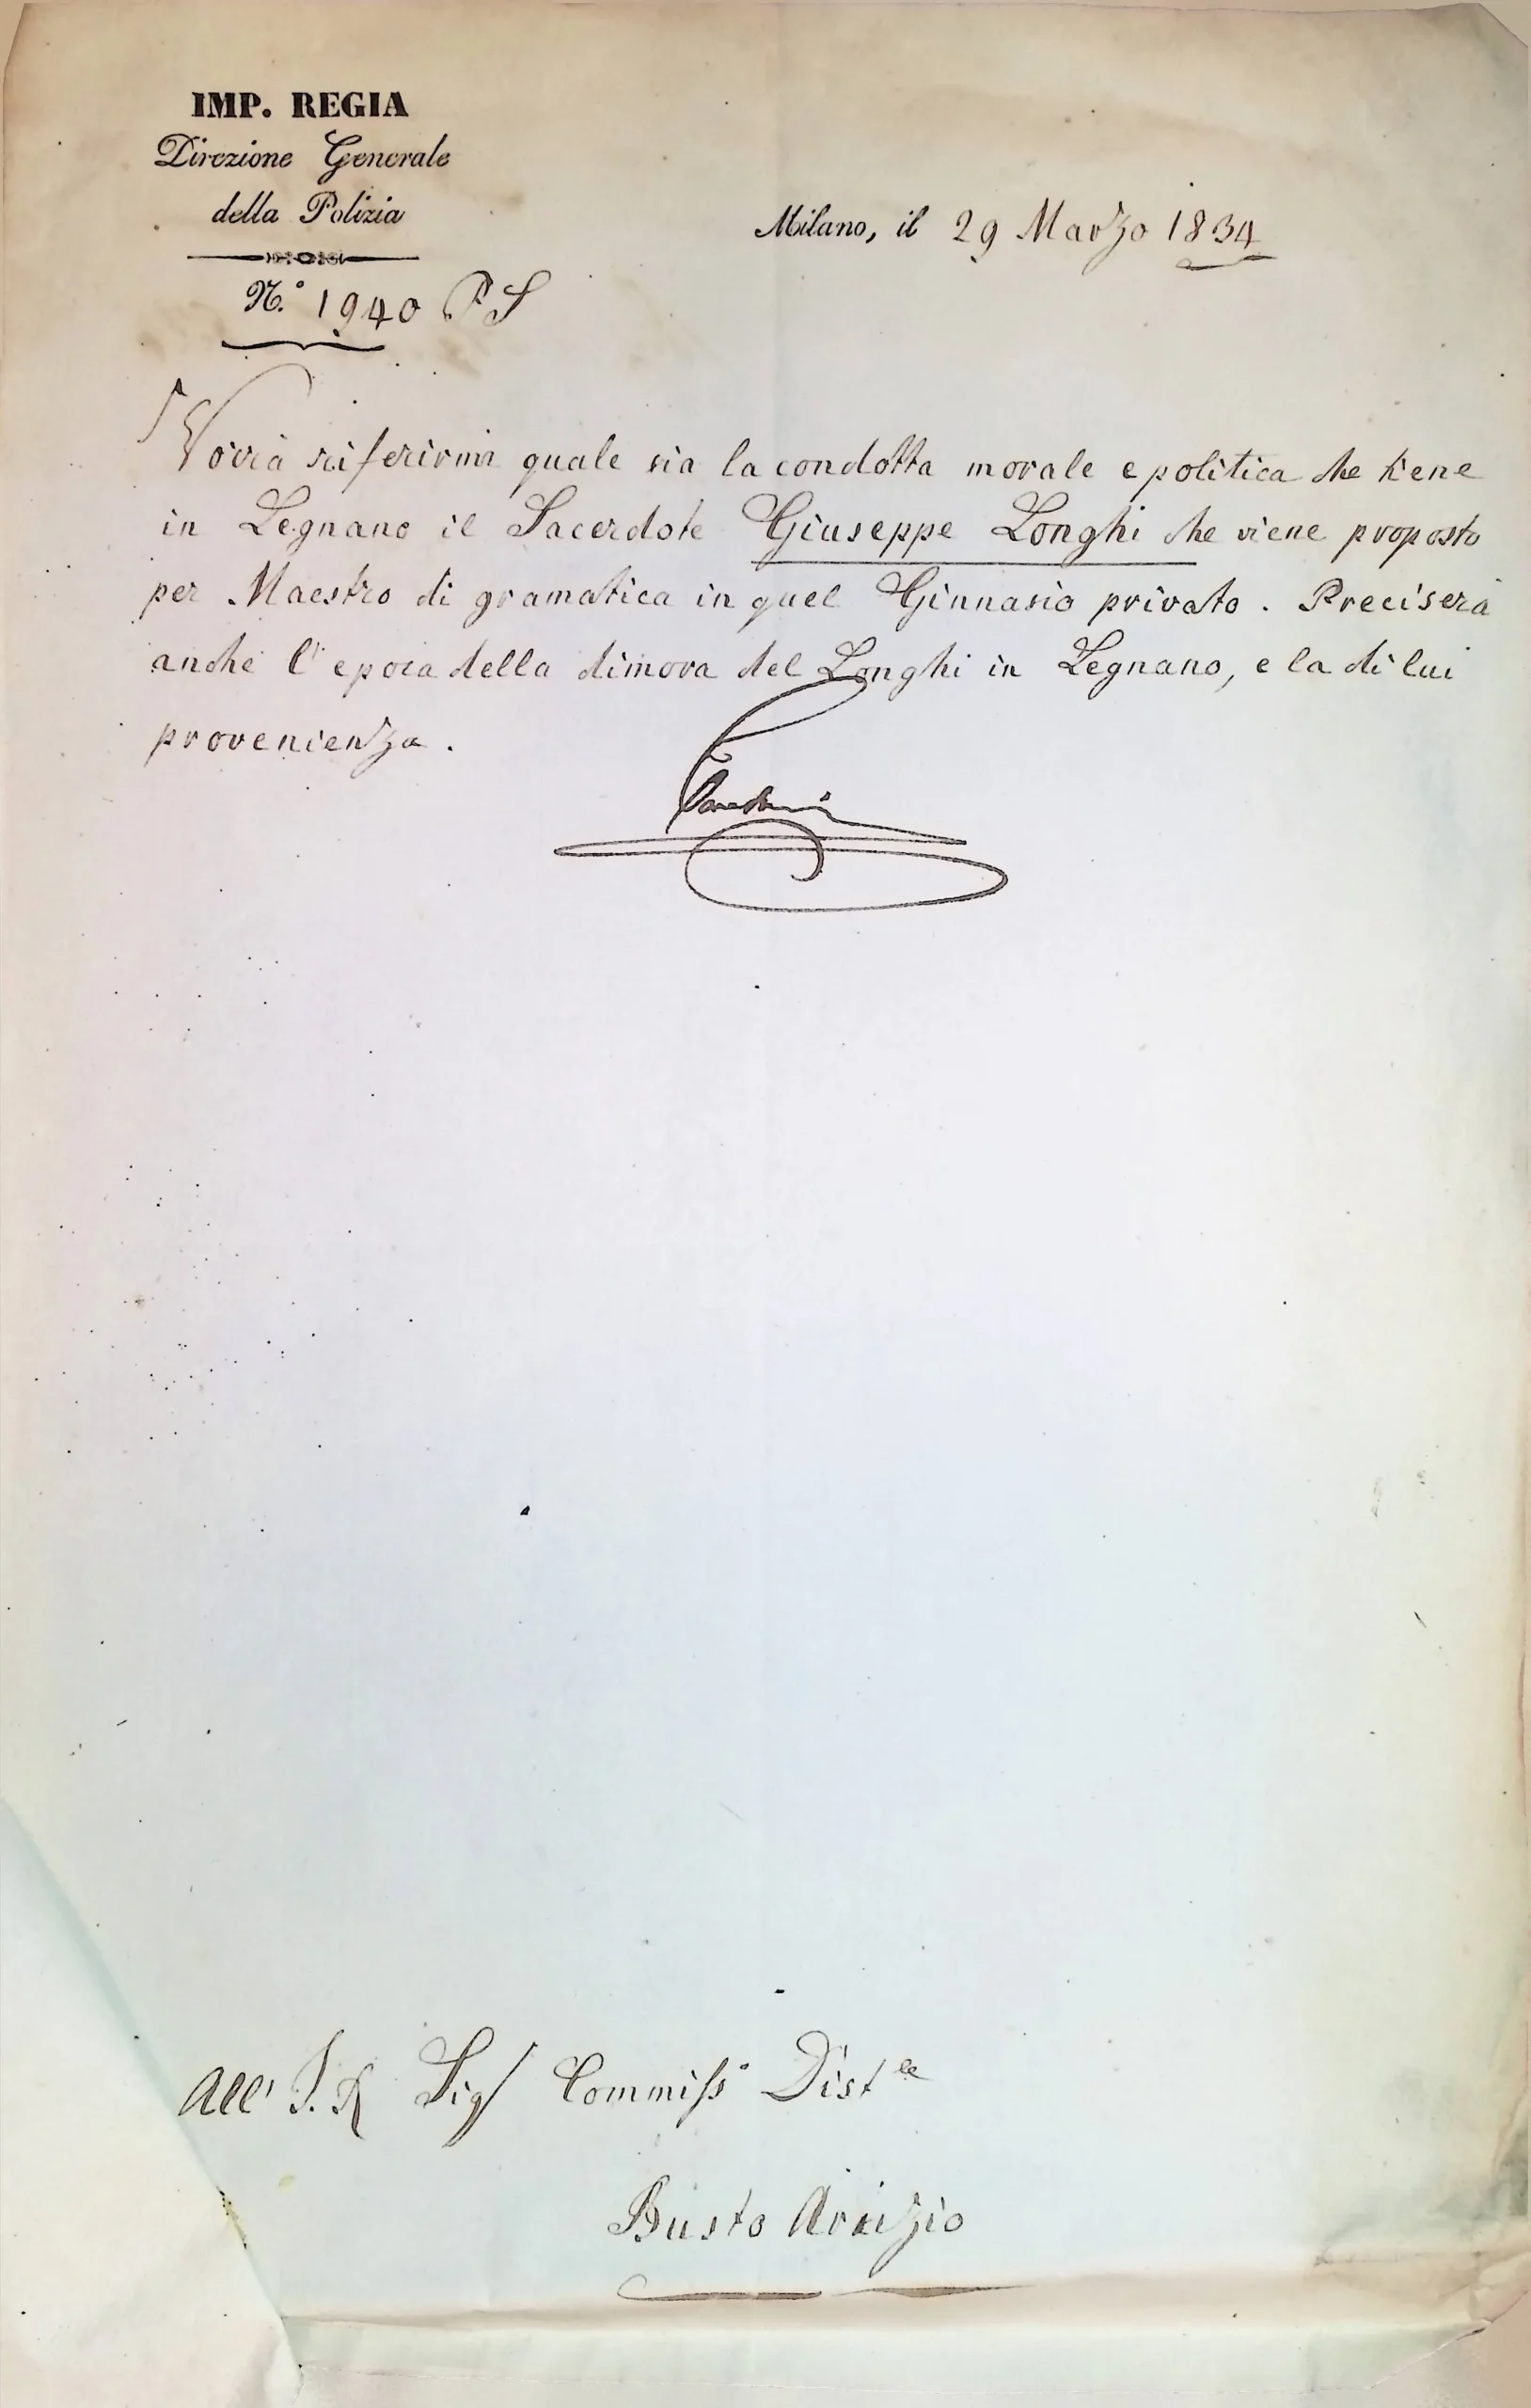 IMP. REGIA
Direzione Generale
della Polizia
Milano, il 29 Marzo 1834
N.° 1940 PS
Vorrà riferirmi quale sia la condotta morale e politica che tiene
in Legnano il Sacerdote Giuseppe Longhi che viene proposto
per Maestro di gramatica in quel Ginnasio privato. Preciserà
anche l'epoca della dimora del Longhi in Legnano, e la di lui
provenienza.
All' I. R Sig Commiss° Dist le
Busto Arsizio